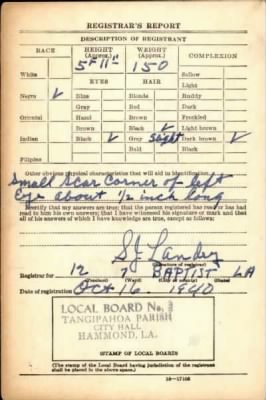 REGISTRAR'S REPORT
DESCRIPTION OF REGISTRANT
RACE HEIGHT (Approx.) WEIGHT (Approx.) COMPLEXION
5 ft 11" 150
White Sallow
EYES HAIR Light
Negro ✓ Blue Blonde Ruddy
Gray Red Dark
Oriental Hazel Brown Freckled
Brown Black ✓ Light brown
Indian Black ✓ Gray slight Dark brown ✓
Bald Black
Filipino
Other obvious physical characteristics that will aid in identification
Small Scar Corner of left
Eye about 1/2 inch long
I certify that my answers are true; that the person registered has read or has had
read to him his own answers; that I have witnessed his signature or mark and that
all of his answers of which I have knowledge are true, except as follows:
S J Landry
(Signature of registrar)
Registrar for 12 7 BAPTIST LA
Date of registration Oct 16 1940
LOCAL BOARD No. 2
TANGIPAHOA PARISH
CITY HALL
HAMMOND, LA.
(STAMP OF LOCAL BOARD)
(The stamp of the Local Board having jurisdiction of the registrant
shall be placed in the above space.)
16—17105